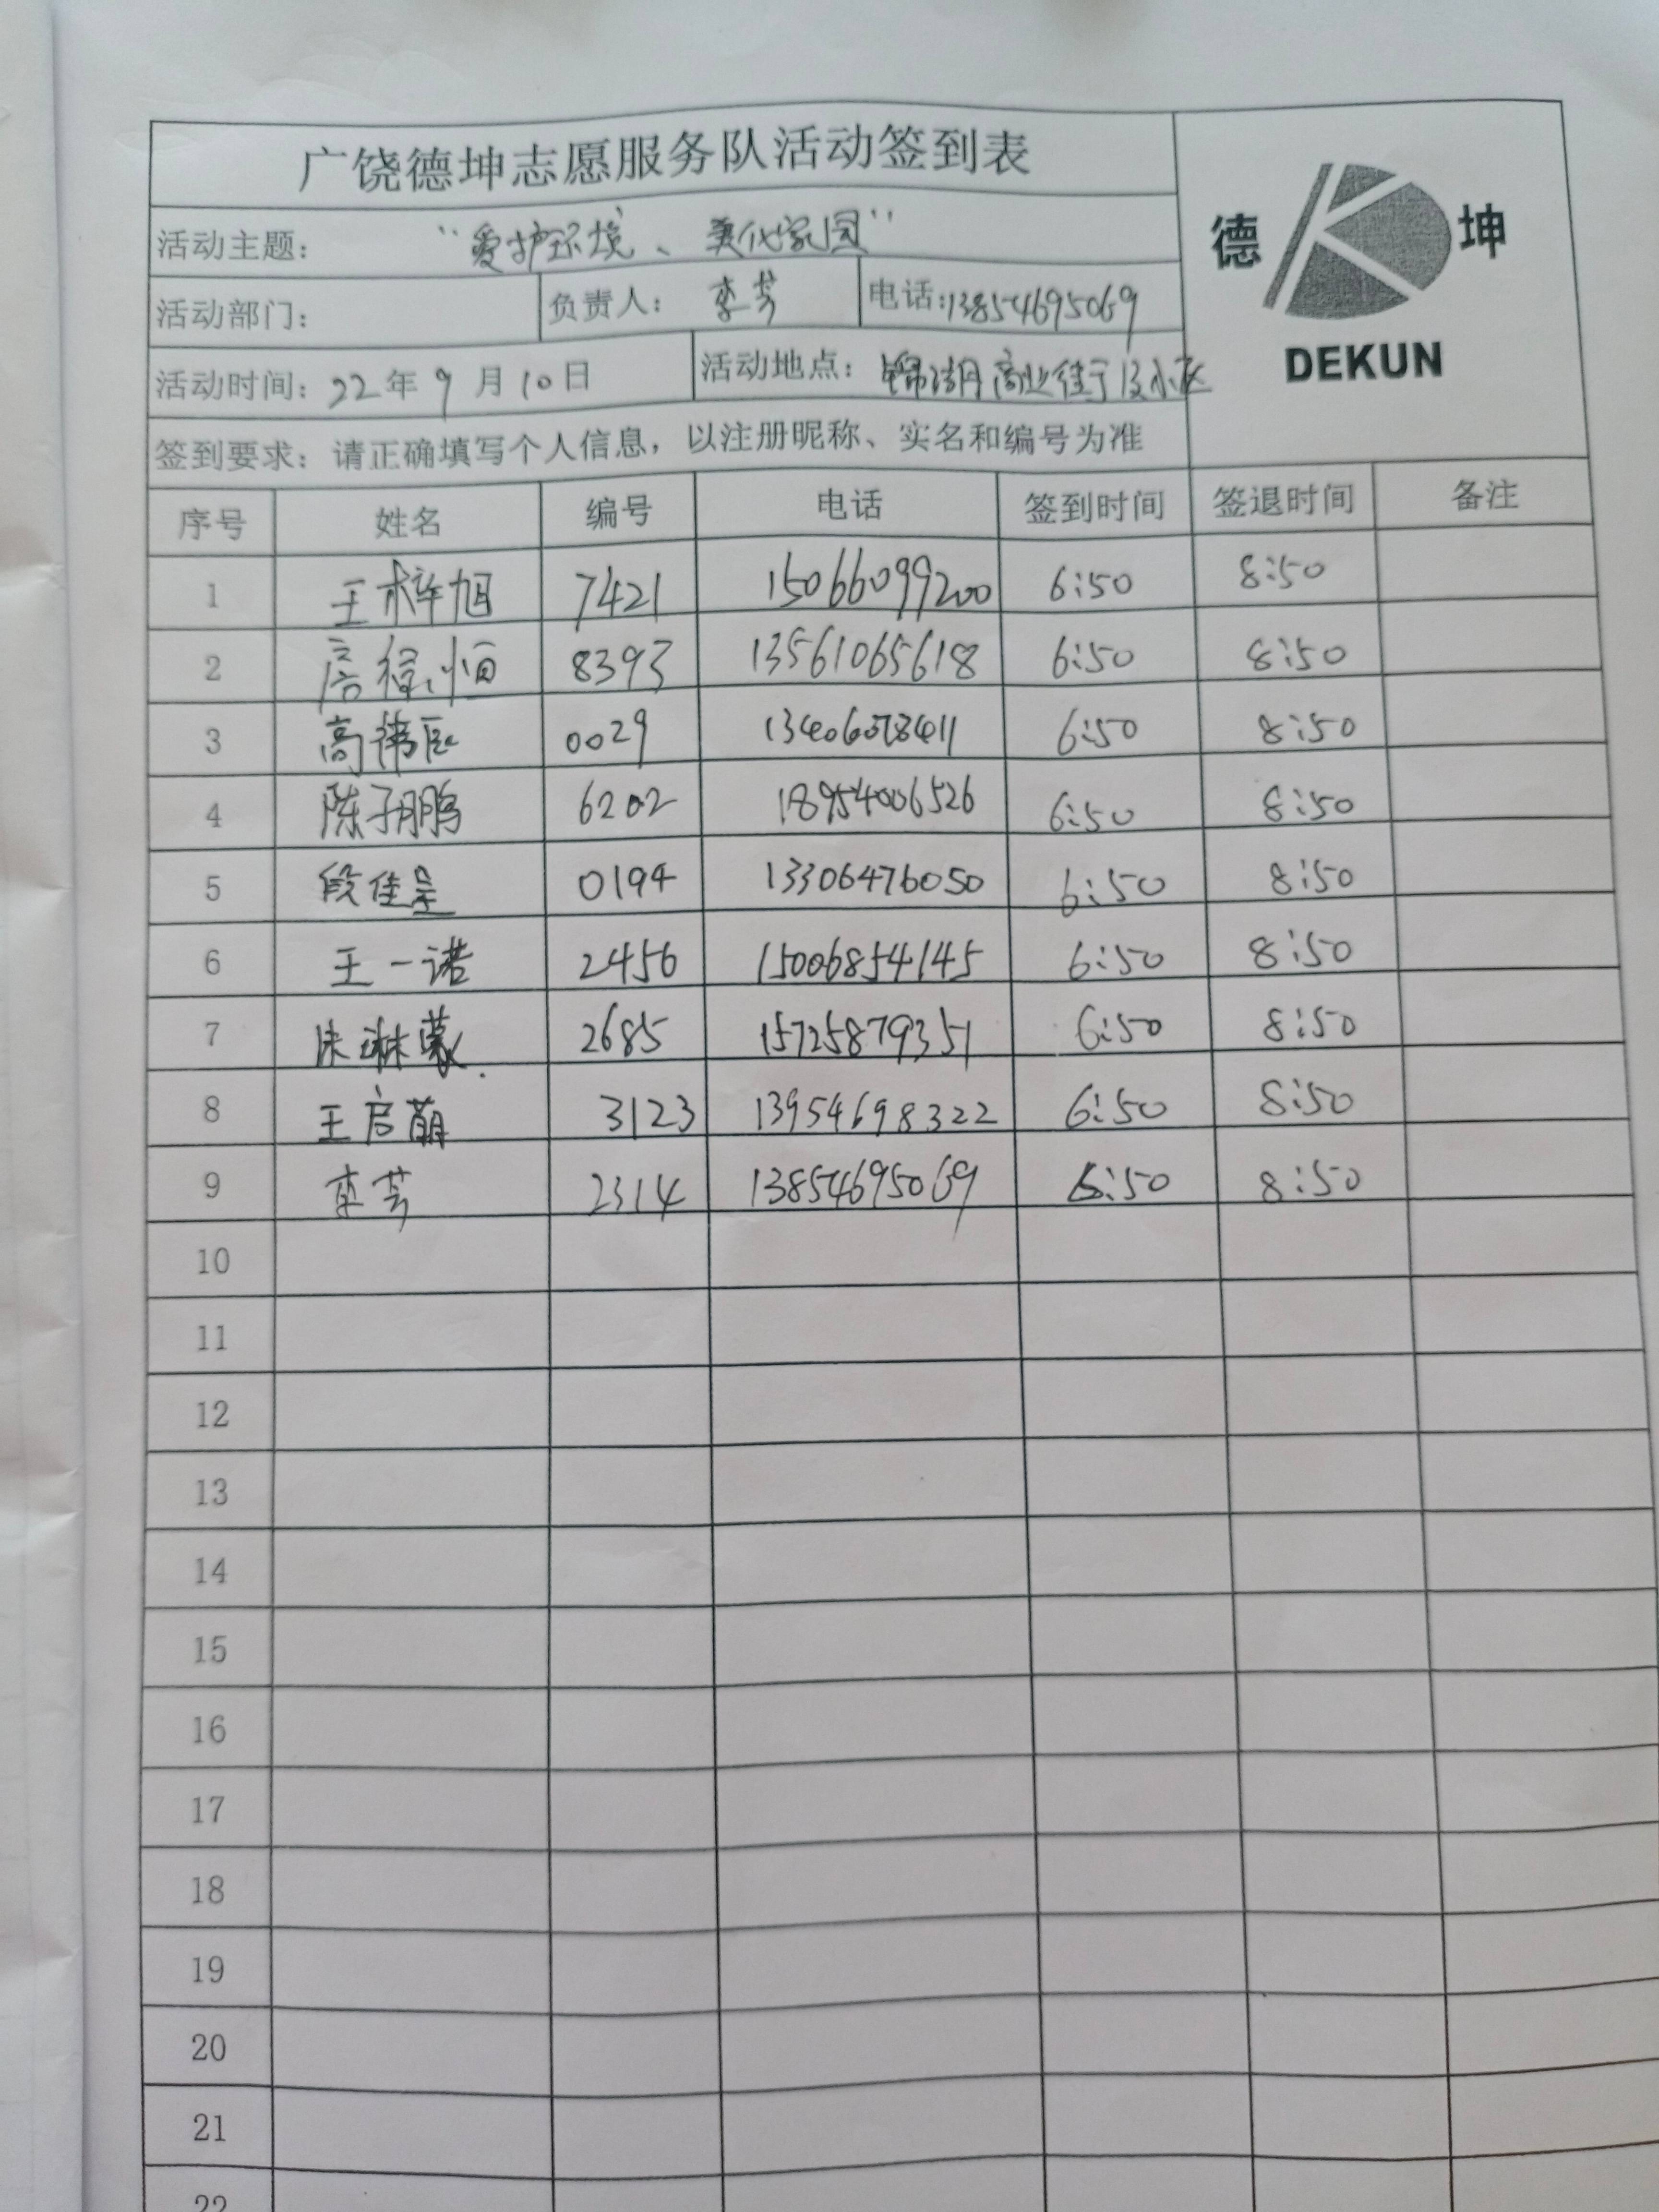 广饶德坤志愿服务队活动签到表
德 坤
DEKUN
活动主题： “爱护环境、美化家园”
活动部门： 负责人： 李芳 电话：13854695069
活动时间：22年9月10日 活动地点： 锦湖月商业住宅及小区
签到要求：请正确填写个人信息，以注册昵称、实名和编号为准
序号 姓名 编号 电话 签到时间 签退时间 备注
1 王梓旭 7421 15066099200 6:50 8:50
2 高 恒 8393 13561065618 6:50 8:50
3 高祎 0029 6:50 8:50
4 陈子鹏 6202 18954006526 6:50 8:50
5 段佳呈 0194 13306476050 6:50 8:50
6 王一诺 2456 15006854145 6:50 8:50
7 朱琳蒙 2685 15725879351 6:50 8:50
8 王启萌 3123 13954698322 6:50 8:50
9 李芳 2314 13854695069 6:50 8:50
10
11
12
13
14
15
16
17
18
19
20
21
22